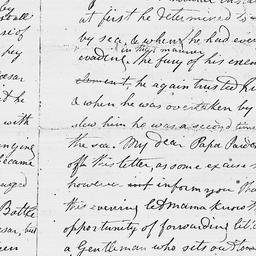 by
at first he determined to
by sea, & when he had ever
in this manner
evading the fury of his enem
he again trusted hi
& when he was overtaken by
slew him he was a second time
the sea. My dear Papa
off this letter, as some excuse
however not inform you tha
this evening let mama know th
opportunity of forwarding
a Gentleman who sets out tom
st all
si of
hey
asar
t he
with
became
aged
Battle
sar, but